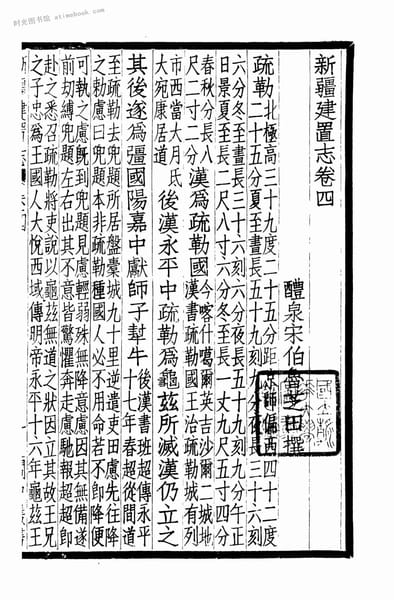 阿光图书馆 atimebook.com
新疆建置志卷四
醴泉宋伯魯芝田撰
疏勒北極高三十九度二十五分距京師偏西四十二度
二十五分夏至晝長五十九刻九分夜長三十六刻
六分冬至晝長三十六刻六分夜長五十九刻九分午正
日景夏至長二尺八寸六分冬至長一丈九尺五寸四分
春秋分長八
尺二寸二分
漢為疏勒國
今喀什噶爾英吉沙爾二城地
漢書疏勒國王治疏勒城有列
市西當大月氏
大宛康居道
後漢永平中疏勒為龜茲所滅漢仍立之
其後遂為彊國陽嘉中獻師子犎牛
後漢書班超傳永平
十七年春超從間道
至疏勒去兜題所居盤橐城九十里逆遣吏田慮先往降
之勅慮曰兜題本非疏勒種國人必不用命若不即降便
可執之慮既到兜題見慮輕弱殊無降意慮因其無備遂
前劫縛兜題左右出其不意皆驚懼奔走慮馳報超超即
赴之悉召疏勒將吏說以龜茲無道之狀因立其故王兄
之子忠為王國人大悅西域傳明帝永平十六年龜茲王